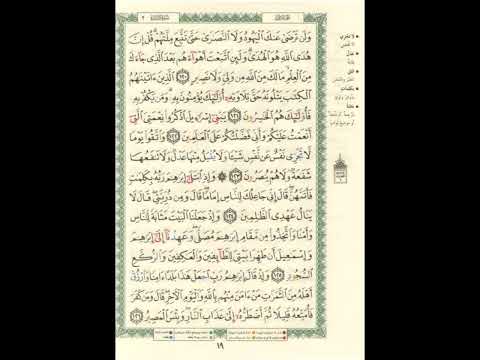 وَلَن تَرْضَىٰ عَنكَ الْيَهُودُ وَلَا النَّصَارَىٰ حَتَّىٰ تَتَّبِعَ مِلَّتَهُمْ قُلْ إِنَّ
هُدَى اللَّهِ هُوَ الْهُدَىٰ وَلَئِنِ اتَّبَعْتَ أَهْوَاءَهُم بَعْدَ الَّذِي جَاءَكَ
مِنَ الْعِلْمِ مَا لَكَ مِنَ اللَّهِ مِن وَلِيٍّ وَلَا نَصِيرٍ ١٢٠ الَّذِينَ آتَيْنَاهُمُ
الْكِتَابَ يَتْلُونَهُ حَقَّ تِلَاوَتِهِ أُولَٰئِكَ يُؤْمِنُونَ بِهِ وَمَن يَكْفُرْ بِهِ
فَأُولَٰئِكَ هُمُ الْخَاسِرُونَ ١٢١ يَا بَنِي إِسْرَائِيلَ اذْكُرُوا نِعْمَتِيَ الَّتِي
أَنْعَمْتُ عَلَيْكُمْ وَأَنِّي فَضَّلْتُكُمْ عَلَى الْعَالَمِينَ ١٢٢ وَاتَّقُوا يَوْمًا
لَّا تَجْزِي نَفْسٌ عَن نَّفْسٍ شَيْئًا وَلَا يُقْبَلُ مِنْهَا عَدْلٌ وَلَا تَنفَعُهَا
شَفَاعَةٌ وَلَا هُمْ يُنصَرُونَ ١٢٣ ۞ وَإِذِ ابْتَلَىٰ إِبْرَاهِيمَ رَبُّهُ بِكَلِمَاتٍ
فَأَتَمَّهُنَّ قَالَ إِنِّي جَاعِلُكَ لِلنَّاسِ إِمَامًا قَالَ وَمِن ذُرِّيَّتِي قَالَ لَا
يَنَالُ عَهْدِي الظَّالِمِينَ ١٢٤ وَإِذْ جَعَلْنَا الْبَيْتَ مَثَابَةً لِّلنَّاسِ
وَأَمْنًا وَاتَّخِذُوا مِن مَّقَامِ إِبْرَاهِيمَ مُصَلًّى وَعَهِدْنَا إِلَىٰ إِبْرَاهِيمَ
وَإِسْمَاعِيلَ أَن طَهِّرَا بَيْتِيَ لِلطَّائِفِينَ وَالْعَاكِفِينَ وَالرُّكَّعِ
السُّجُودِ ١٢٥ وَإِذْ قَالَ إِبْرَاهِيمُ رَبِّ اجْعَلْ هَٰذَا بَلَدًا آمِنًا وَارْزُقْ
أَهْلَهُ مِنَ الثَّمَرَاتِ مَنْ آمَنَ مِنْهُم بِاللَّهِ وَالْيَوْمِ الْآخِرِ قَالَ وَمَن كَفَرَ
فَأُمَتِّعُهُ قَلِيلًا ثُمَّ أَضْطَرُّهُ إِلَىٰ عَذَابِ النَّارِ وَبِئْسَ الْمَصِيرُ ١٢٦
١٩